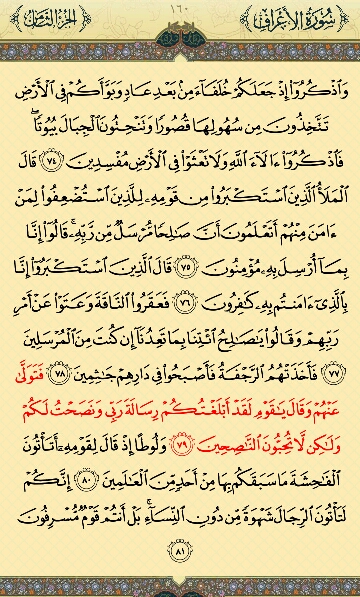 سُورَةُ الْأَعْرَافِ ١٦٠ الجُزءُ الثَّامِنُ
وَاذْكُرُوا إِذْ جَعَلَكُمْ خُلَفَاءَ مِن بَعْدِ عَادٍ وَبَوَّأَكُمْ فِي الْأَرْضِ
تَتَّخِذُونَ مِن سُهُولِهَا قُصُورًا وَتَنْحِتُونَ الْجِبَالَ بُيُوتًا
فَاذْكُرُوا ءَالَاءَ اللَّهِ وَلَا تَعْثَوْا فِي الْأَرْضِ مُفْسِدِينَ ٧٤ قَالَ
الْمَلَأُ الَّذِينَ اسْتَكْبَرُوا مِن قَوْمِهِ لِلَّذِينَ اسْتُضْعِفُوا لِمَنْ
ءَامَنَ مِنْهُمْ أَتَعْلَمُونَ أَنَّ صَالِحًا مُّرْسَلٌ مِّن رَّبِّهِ قَالُوا إِنَّا
بِمَا أُرْسِلَ بِهِ مُؤْمِنُونَ ٧٥ قَالَ الَّذِينَ اسْتَكْبَرُوا إِنَّا
بِالَّذِي ءَامَنتُم بِهِ كَافِرُونَ ٧٦ فَعَقَرُوا النَّاقَةَ وَعَتَوْا عَنْ أَمْرِ
رَبِّهِمْ وَقَالُوا يَاصَالِحُ ائْتِنَا بِمَا تَعِدُنَا إِن كُنتَ مِنَ الْمُرْسَلِينَ
٧٧ فَأَخَذَتْهُمُ الرَّجْفَةُ فَأَصْبَحُوا فِي دَارِهِمْ جَاثِمِينَ ٧٨ فَتَوَلَّىٰ
عَنْهُمْ وَقَالَ يَاقَوْمِ لَقَدْ أَبْلَغْتُكُمْ رِسَالَةَ رَبِّي وَنَصَحْتُ لَكُمْ
وَلَٰكِن لَّا تُحِبُّونَ النَّاصِحِينَ ٧٩ وَلُوطًا إِذْ قَالَ لِقَوْمِهِ أَتَأْتُونَ
الْفَاحِشَةَ مَا سَبَقَكُم بِهَا مِنْ أَحَدٍ مِّنَ الْعَالَمِينَ ٨٠ إِنَّكُمْ
لَتَأْتُونَ الرِّجَالَ شَهْوَةً مِّن دُونِ النِّسَاءِ بَلْ أَنتُمْ قَوْمٌ مُّسْرِفُونَ
٨١